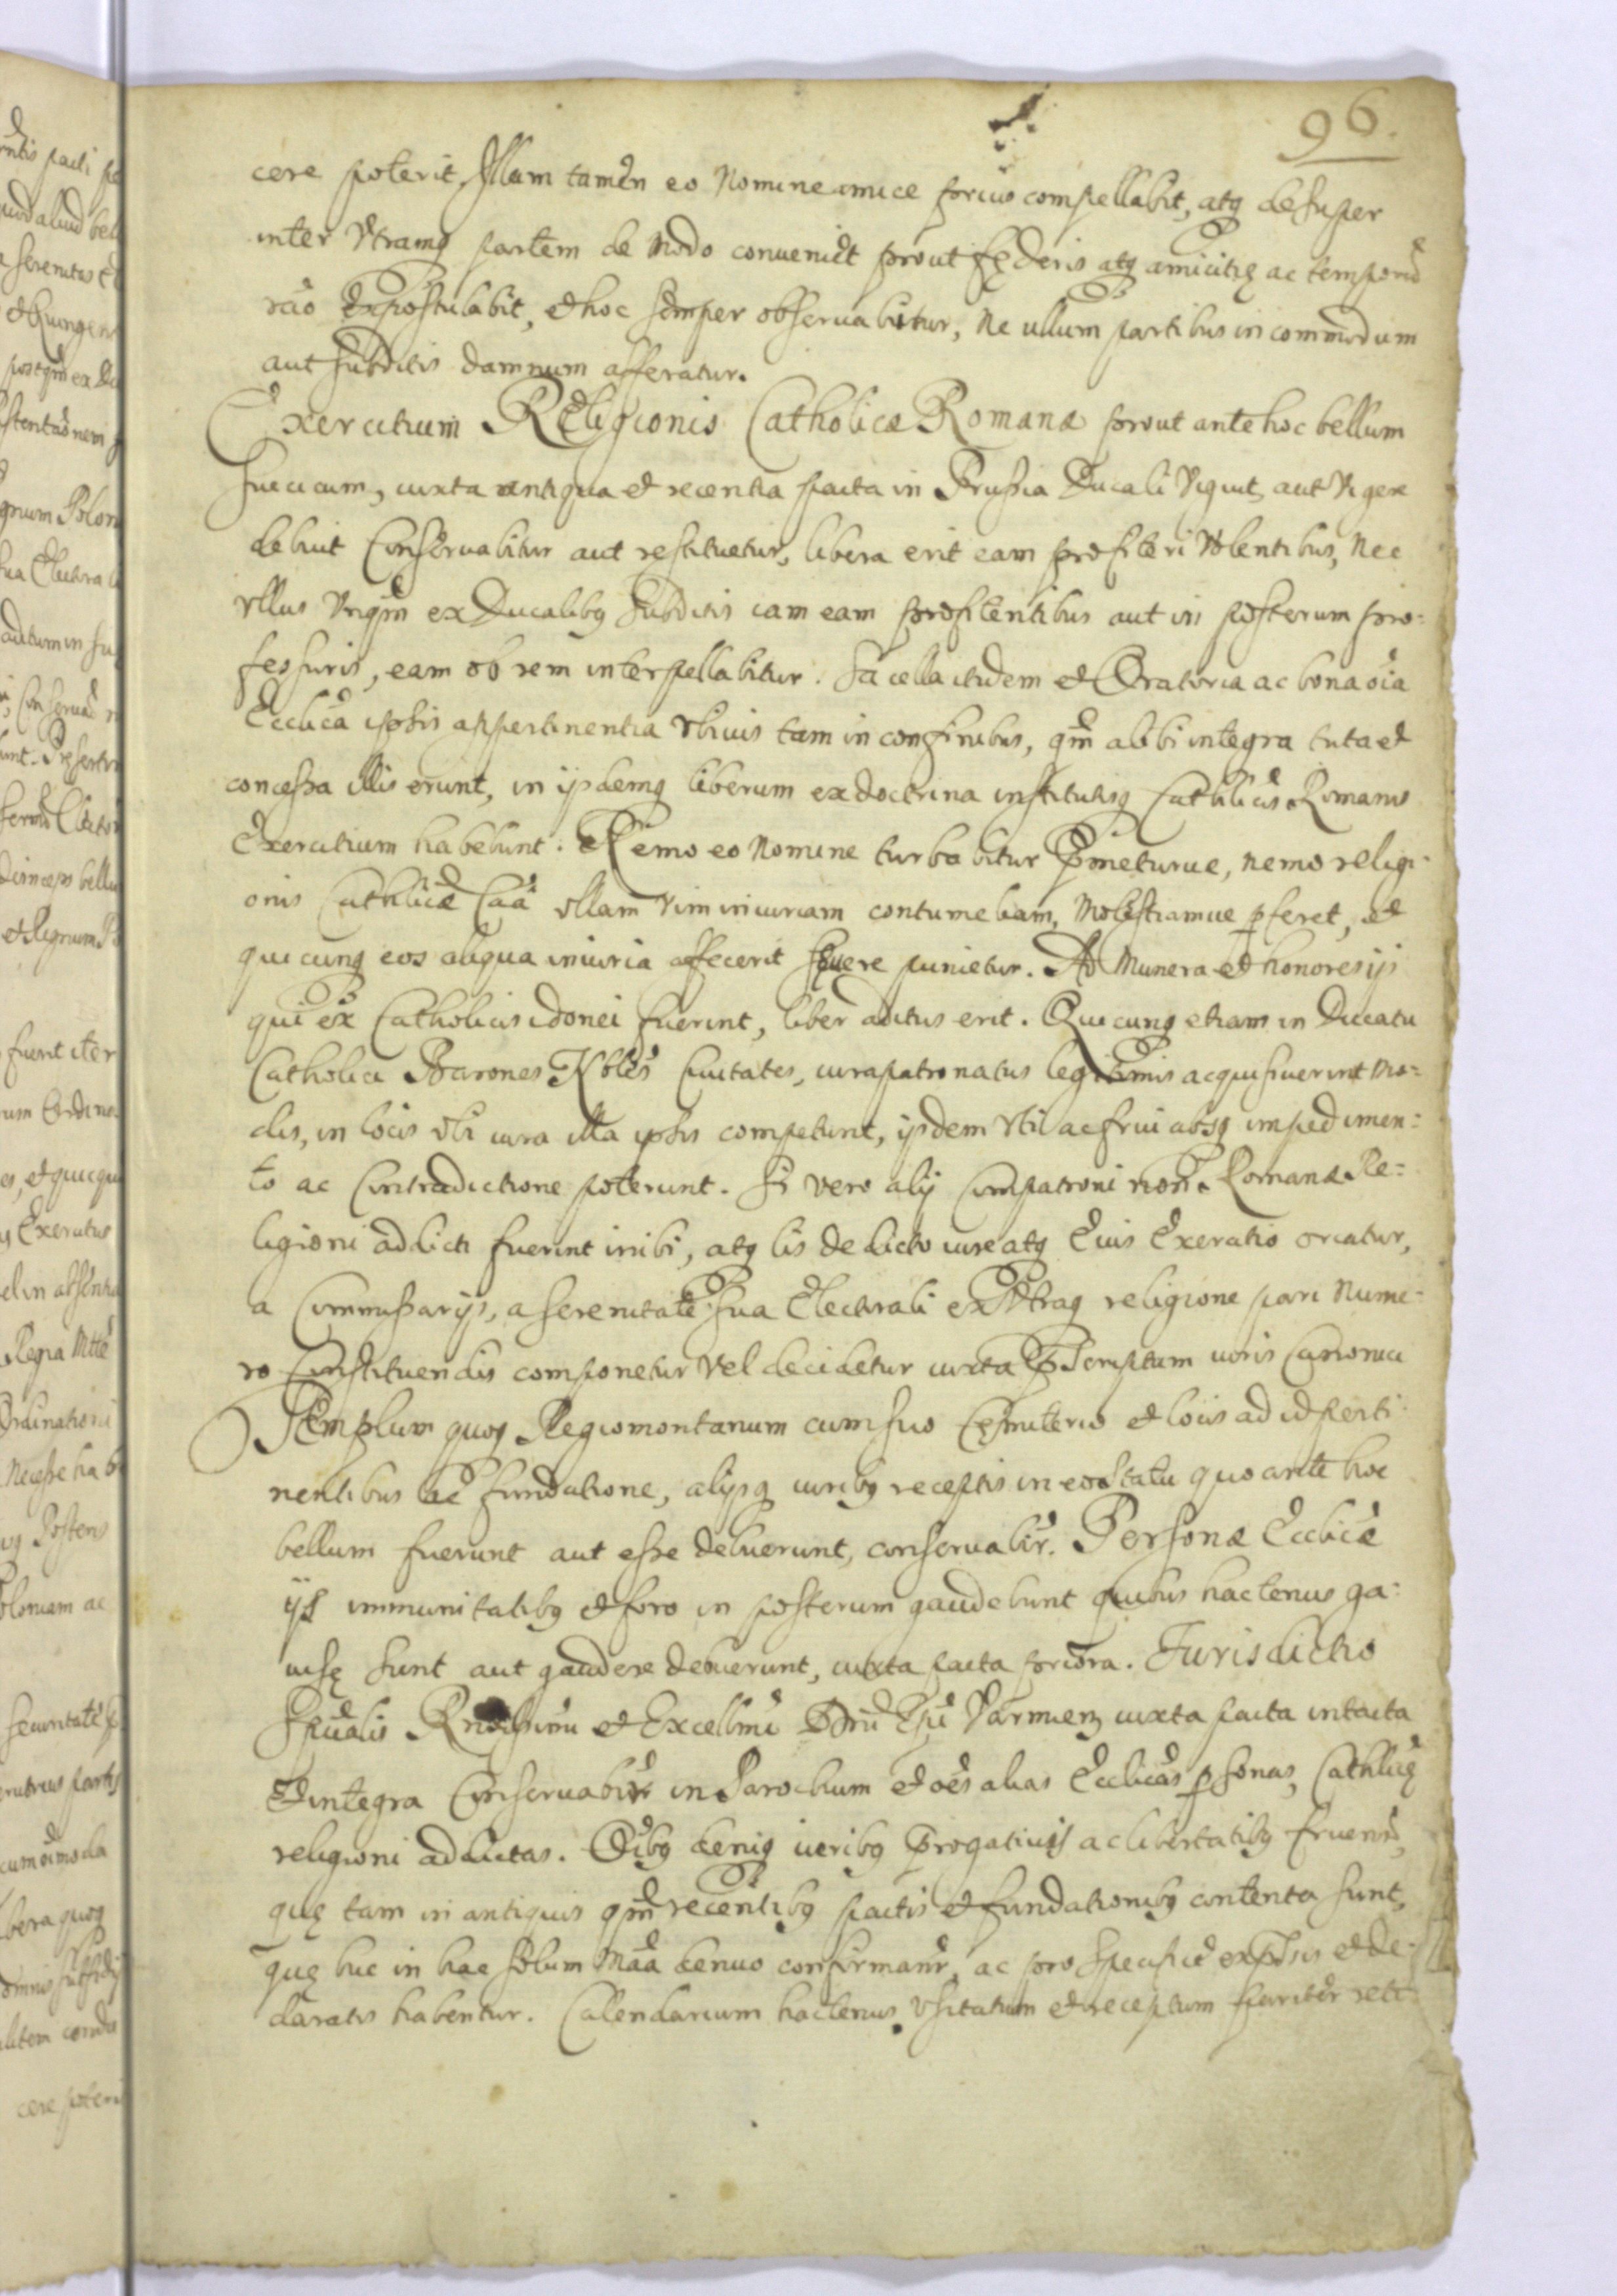 96.
cere poterit, Illum tamen eo Nomine amice prius compellabit, atq desuper
inter Utramq partem de Modo conveniet prout fęderis atq amicitię ac temporũ
rão expostulabit, et hoc semper observabitur, Ne ullum partibus incommodum
aut subditis damnum afferatur.
Exercitium Religionis Catholicæ Romanæ prout ante hoc bellum
suecicum, iuxta antiqua et recentia pacta in Prussia Ducali Viguit aut Vigere
debuit Conservabitur aut restituetur, libera erit eam profiteri Volentibus, Nec
Ullus Unqm̃ ex Ducalibq subditis iam eam profitentibus aut in posterum pro-
fessuris, eam ob rem interpellabitur. Sacella itidem et Oratoria ac bona oĩa
Ecclicã ipsis appertinentia Ubivis tam in confinibus, qm̃ alibi integra tuta et
concessa illis erunt, in ijsdemq liberum ex doctrina institutisq Catholicis Romanis
Exercitium habebunt. Nemo eo Nomine turbabitur Pmeturve, nemo religi-
onis Catholicæ Caã Ullam Vim iniuriam contumeliam, Molestiamve pferet, et
quicunq eos aliqua iniuria affecerit severe punietur. Ad Munera et honores ij
qui ex Catholicis idonei fuerint, liber aditus erit. Quicunq etiam in Ducatu
Catholici Barones Nbles Civitates, iura patronatus legitimis acquisiverint Mo-
dis, in locis Ubi iura illa ipsis competunt, ijsdem Uti ac frui absq impedimen-
to ac Contradictione poterunt. Si vero alij Compatroni non Romanæ Re-
ligioni addicti fuerint inibi, atq lis de dicto iure atq Eius Exercitio oriatur,
a Commissarijs, a serenitate sua Electorali ex Utraq religione pari Nume-
ro Constituendis componetur Vel decidetur iuxta Pscriptum iuris Canonici
Templum quoq Regiomontanum cum suo Cęmiterio et locis ad id perti-
nentibus ac fundatione, alijsq iuribq receptis in eo statu quo ante hoc
bellum fuerunt aut esse debuerunt, conservabir̃. Personæ Ecclicæ
ijs immunitatibq et foro in posterum gaudebunt quibus hactenus ga-
visę sunt aut gaudere debuerunt, iuxta pacta priora. Jurisdictio
Spũalis Rndissimi et Excellmi Dñi Epi Varmien iuxta pacta intacta
et integra Conservabitr in Parochum et oẽs alias Ecclicas psonas, Catholicę
religioni addictas. Oĩbq deniq iuribq Progativis ac libertatibq fruend,
quę tam in antiquis qm̃ recentibq pactis et fundationibq contenta sunt,
quę huc in hac solum Maã denuo confirmanr̃, ac pro specifice expssis et de-
claratis habentur. Calendarium hactenus Usitatum et receptum pariter reti-